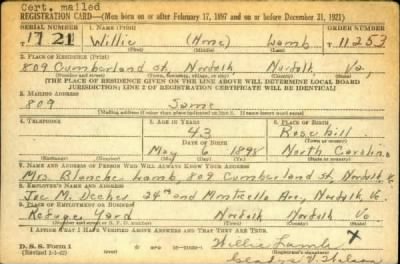 Cert. mailed
REGISTRATION CARD—(Men born on or after February 17, 1897 and on or before December 31, 1921)
SERIAL NUMBER 1. NAME (Print) ORDER NUMBER
T 1721 Willie (None) Lamb T 11253
(First) (Middle) (Last)
2. PLACE OF RESIDENCE (Print)
809 Cumberland St, Norfolk Norfolk Va,
(Number and street) (Town, township, village, or city) (County) (State)
[THE PLACE OF RESIDENCE GIVEN ON THE LINE ABOVE WILL DETERMINE LOCAL BOARD
JURISDICTION; LINE 2 OF REGISTRATION CERTIFICATE WILL BE IDENTICAL]
3. MAILING ADDRESS
809 Same
[Mailing address if other than place indicated on line 2. If same insert word same]
4. TELEPHONE 5. AGE IN YEARS 6. PLACE OF BIRTH
43 Rose hill
DATE OF BIRTH (Town or county)
May 6 1898 North Carolina
(Mo.) (Day) (Yr.) (State or country)
7. NAME AND ADDRESS OF PERSON WHO WILL ALWAYS KNOW YOUR ADDRESS
Mrs. Blanche Lamb, 809 Cumberland St, Norfolk
8. EMPLOYER'S NAME AND ADDRESS
34th and Monticello Ave, Norfolk, Va.
9. PLACE OF EMPLOYMENT OR BUSINESS
Yard Norfolk Norfolk Va
(Number and street or R. F. D. number) (Town) (County) (State)
I AFFIRM THAT I HAVE VERIFIED ABOVE ANSWERS AND THAT THEY ARE TRUE.
D. S. S. Form 1
(Revised 1-1-42) Willie Lamb X
Gladys V.